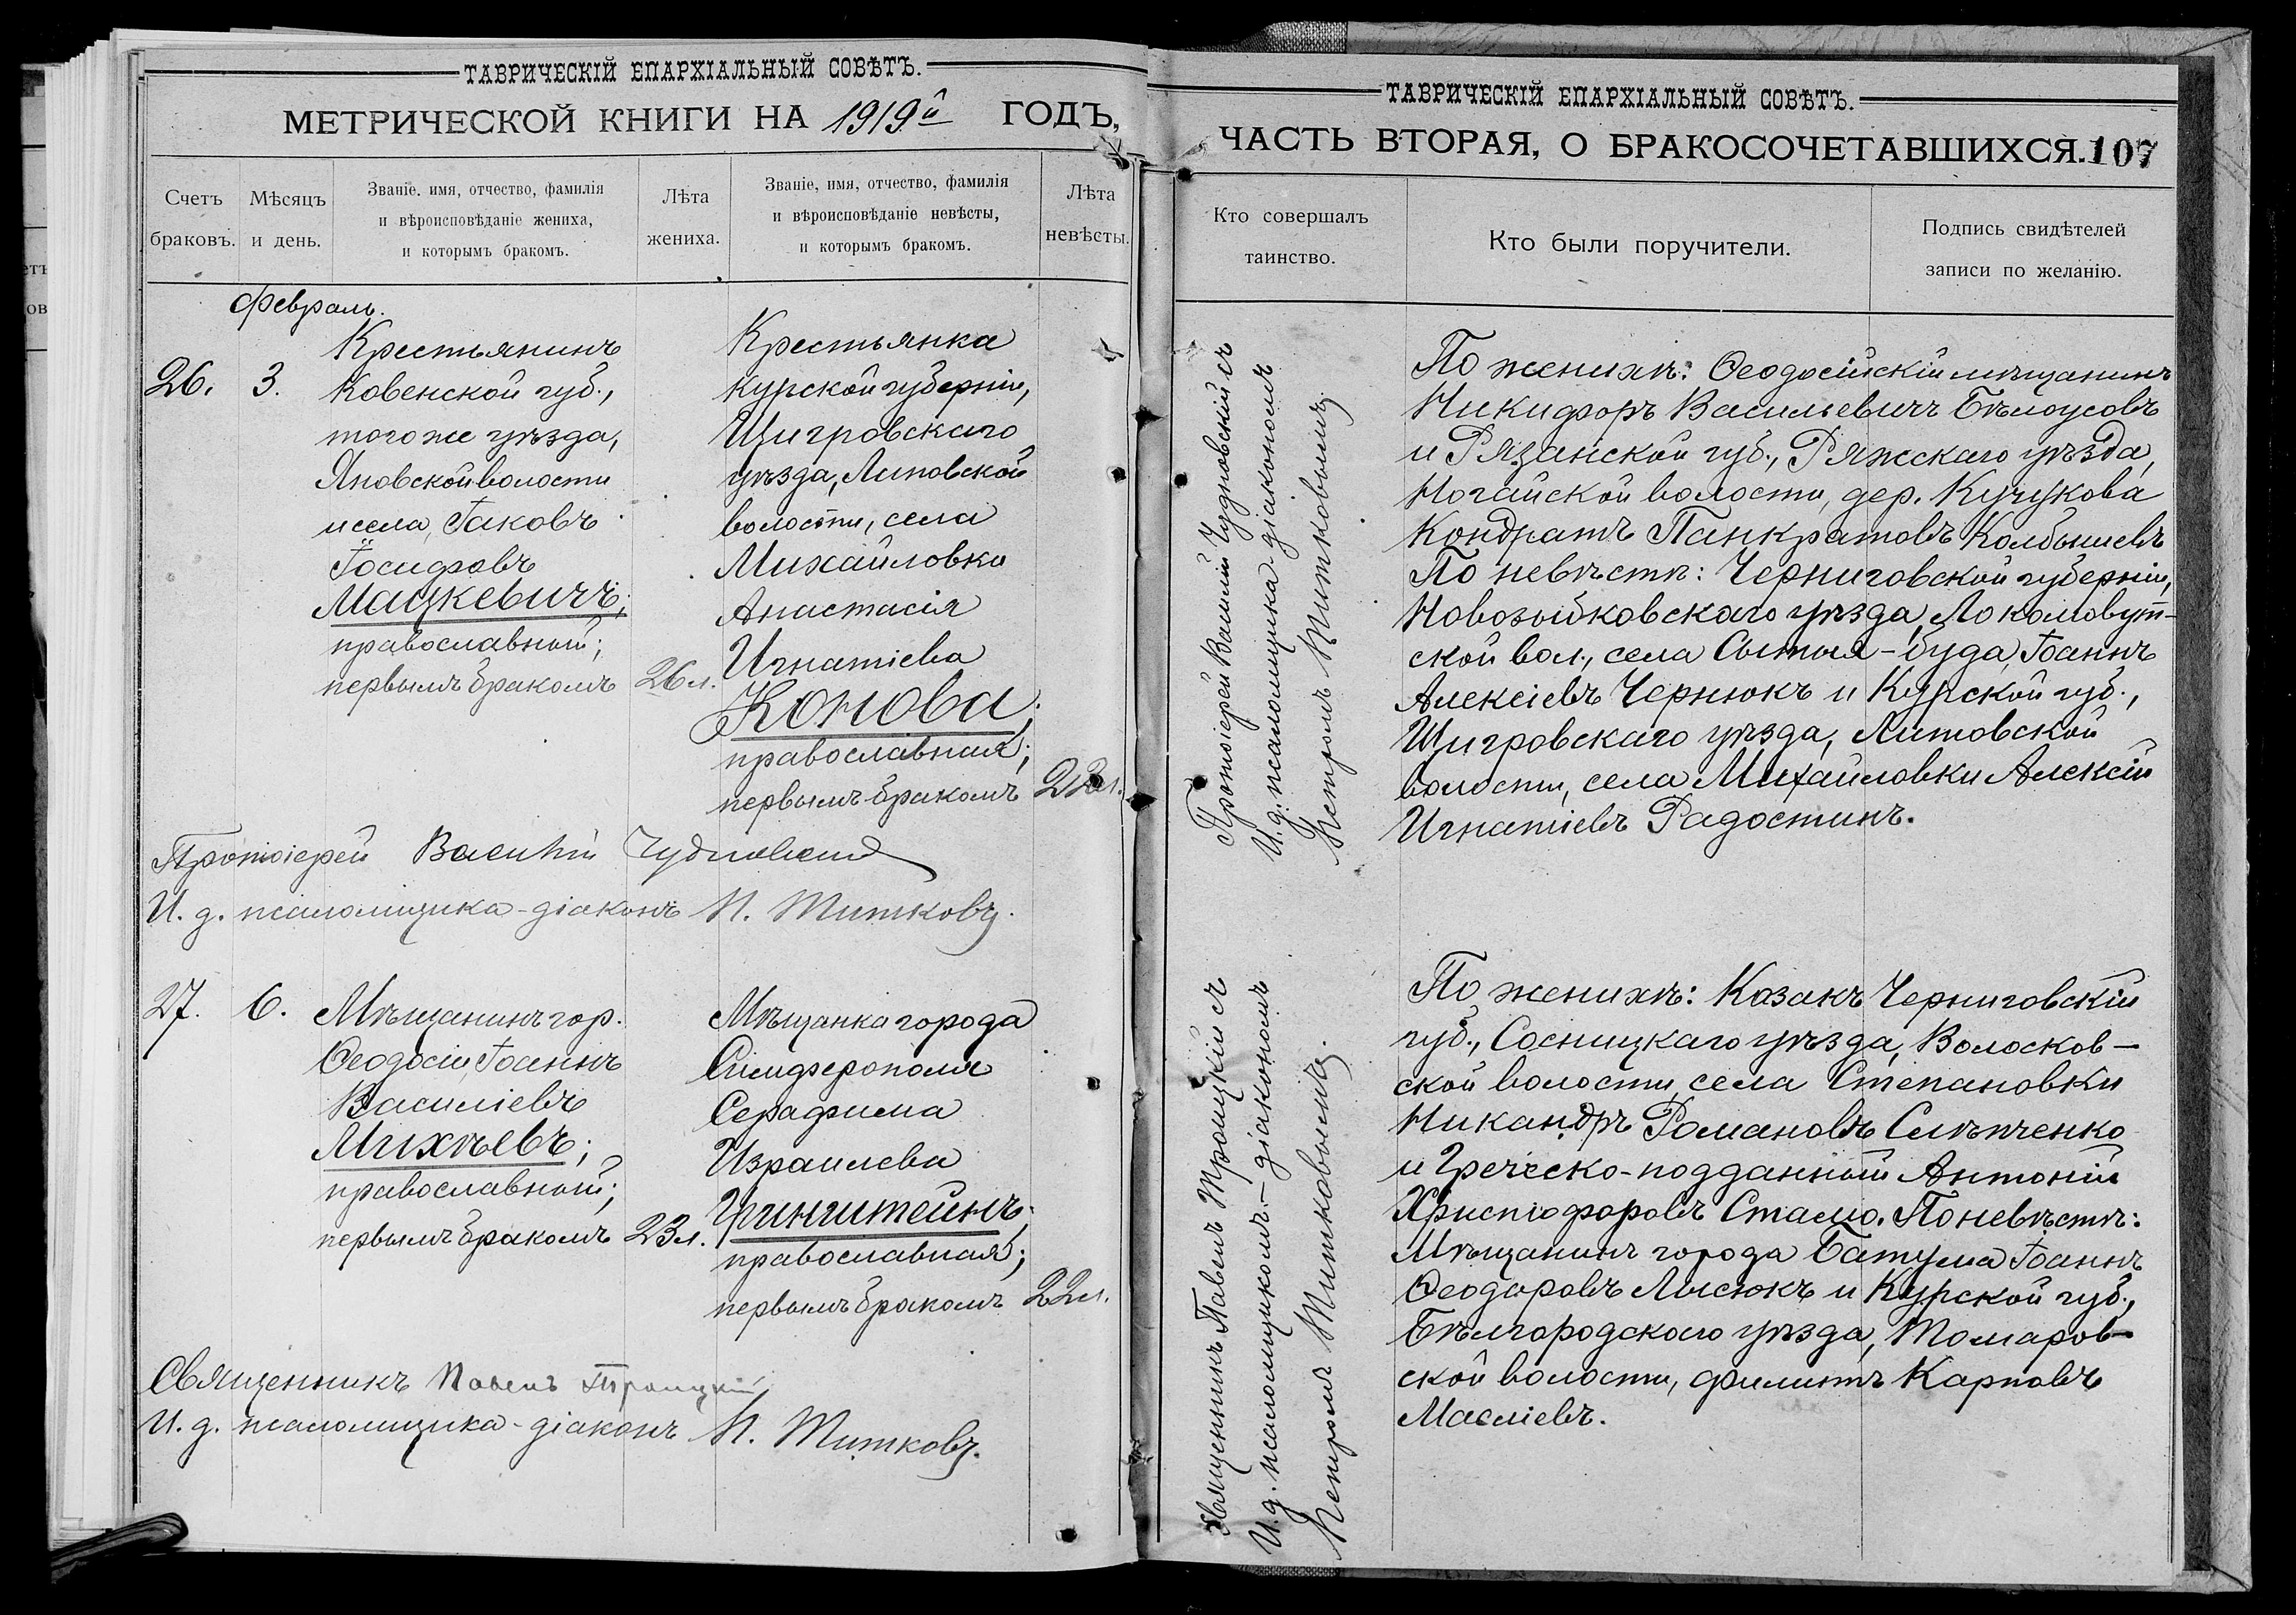 ТАВРИЧЕСКІЙ ЕПАРХІАЛЬНЫЙ СОВѢТЪ.
МЕТРИЧЕСКОЙ КНИГИ НА 1919й ГОДЪ,
Счетъ браковъ.
Мѣсяцъ и день.
Званіе, имя, отчество, фамилія
и вѣроисповѣданіе жениха,
и которымъ бракомъ.
Лѣта жениха.
Званіе, имя, отчество, фамилія
и вѣроисповѣданіе невѣсты,
и которымъ бракомъ.
Лѣта невѣсты.
Февраль.
26. 3.
Крестьянинъ
Ковенской губ.,
того же уѣзда,
Яновской волости
и села, Іаковъ
Іосифовъ
Мацкевичъ;
православный;
первымъ бракомъ
26 л.
Крестьянка
Курской губерніи,
Щигровскаго
уѣзда, Липовской
волости, села
Михайловки
Анастасія
Игнатіева
Конова;
православная;
первымъ бракомъ
Протоіерей Василій Чудновскій
И. д. псаломщика-діаконъ П. Титковъ.
27. 6.
Мѣщанинъ гор.
Ѳеодосіи, Іоаннъ
Василіевъ
Михѣевъ;
православный;
первымъ бракомъ
23 л.
Мѣщанка города
Симферополя
Серафима
Израилева
Гринштейнъ;
православная;
первымъ бракомъ
22 л.
Священникъ Павелъ Троицкій
И. д. псаломщика-діаконъ П. Титковъ.
ТАВРИЧЕСКІЙ ЕПАРХІАЛЬНЫЙ СОВѢТЪ.
ЧАСТЬ ВТОРАЯ, О БРАКОСОЧЕТАВШИХСЯ. 107
Кто совершалъ
таинство.
Кто были поручители.
Подпись свидѣтелей
записи по желанію.
Протоіерей Василій Чудновскій съ
И. д. псаломщика-діакономъ
Петромъ Титковымъ.
По женихѣ: Ѳеодосійскій мѣщанинъ
Никифоръ Васильевичъ Бѣлоусовъ
и Рязанской губ., Ряжскаго уѣзда,
Ногайской волости, дер. Кучукова
Кондратъ Панкратовъ Колбышевъ
По невѣстѣ: Черниговской губерніи,
Новозыбковскаго уѣзда,
ской вол., села Сытыя-буда, Іоаннъ
Алексіевъ Чернюкъ и Курской губ.,
Щигровскаго уѣзда, Липовской
волости, села Михайловки Алексій
Игнатіевъ Радостинъ.
Священникъ Павелъ Троицкій съ
И. д. псаломщикомъ-діакономъ
Петромъ Титковымъ.
По женихѣ: Козакъ Черниговскій
губ., Сосницкаго уѣзда, Волосков-
ской волости, села Степановки
Никандръ Романовъ
и Греческо-подданный Антоній
Христофоровъ Стамо. По невѣстѣ:
Мѣщанинъ города Батума Іоаннъ
Ѳеодоровъ Лысюкъ и Курской губ.,
Бѣлгородскаго уѣзда, Томаров-
ской волости, Филиппъ Карповъ
Маслiевъ.